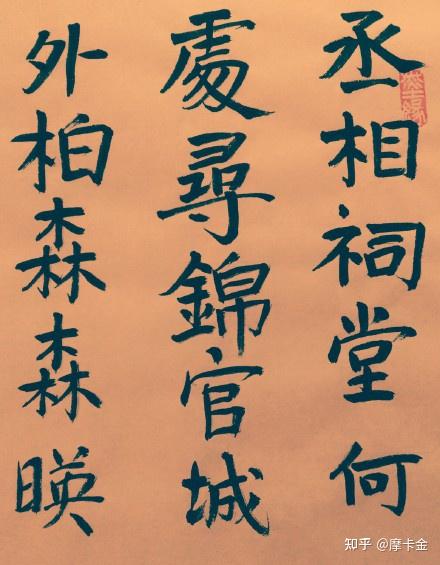 丞相祠堂何
處尋錦官城
外柏森森暎
知乎 @摩卡金